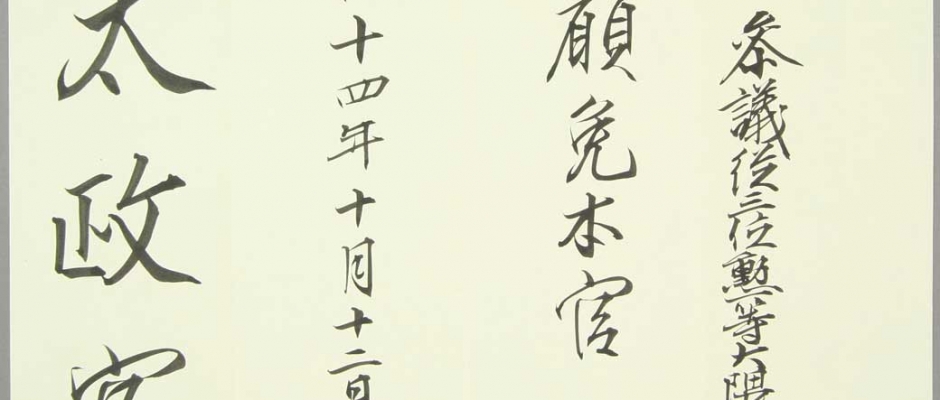 参議従三位勲一等大隈
願免本官
十四年十月十二日
太政官